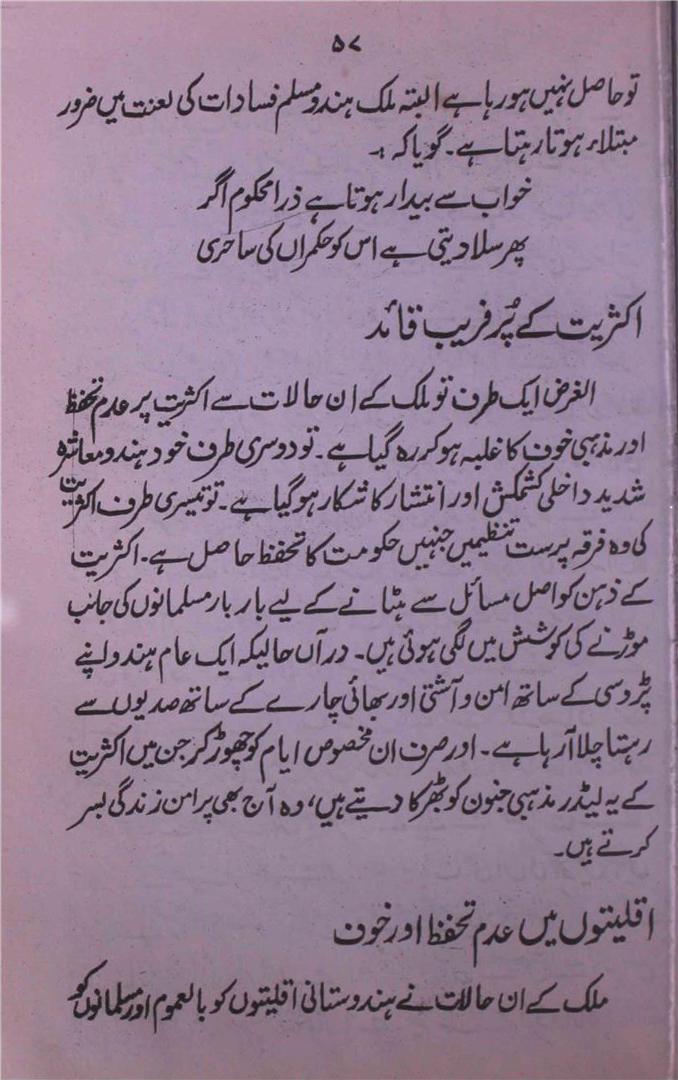 ۵۷
تو حاصل نہیں ہو رہا ہے البتہ ملک ہندو مسلم فسادات کی لعنت میں ضرور
مبتلاء ہوتا رہتا ہے۔ گویا کہ ؎
خواب سے بیدار ہوتا ہے ذرا محکوم اگر
پھر سلا دیتی ہے اس کو حکمراں کی ساحری
اکثریت کے پُر فریب قائد
الغرض ایک طرف تو ملک کے ان حالات سے اکثریت پر عدم تحفظ
اور مذہبی خوف کا غلبہ ہو کر رہ گیا ہے۔ تو دوسری طرف خود ہندو معاشرہ
شدید داخلی کشمکش اور انتشار کا شکار ہو گیا ہے۔ تو تیسری طرف اکثریت
کی وہ فرقہ پرست تنظیمیں جنہیں حکومت کا تحفظ حاصل ہے۔ اکثریت
کے ذہن کو اصل مسائل سے ہٹانے کے لیے بار بار مسلمانوں کی جانب
موڑنے کی کوشش میں لگی ہوئی ہیں۔ درآں حالیکہ ایک عام ہندو اپنے
پڑوسی کے ساتھ امن و آشتی اور بھائی چارے کے ساتھ صدیوں سے
رہتا چلا آ رہا ہے۔ اور صرف ان مخصوص ایام کو چھوڑ کر جن میں اکثریت
کے یہ لیڈر مذہبی جنون کو بھڑکا دیتے ہیں، وہ آج بھی پر امن زندگی بسر
کرتے ہیں۔
اقلیتوں میں عدم تحفظ اور خوف
ملک کے ان حالات نے ہندوستانی اقلیتوں کو بالعموم اور مسلمانوں کو